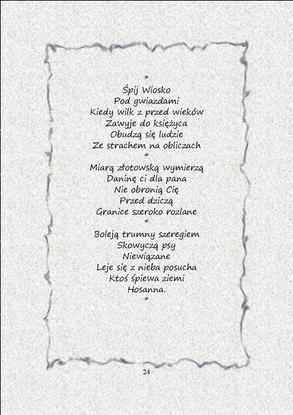 *
Śpij Wiosko
Pod gwiazdami
Kiedy wilk z przed wieków
Zawyje do księżyca
Obudzą się ludzie
Ze strachem na obliczach
*
Miarą złotowską wymierzą
Daninę ci dla pana
Nie obronią Cię
Przed dziczą
Granice szeroko rozlane
*
Boleją trumny szeregiem
Skowyczą psy
Niewiązane
Leje się z nieba posucha
Ktoś śpiewa ziemi
Hosanna.
*
24